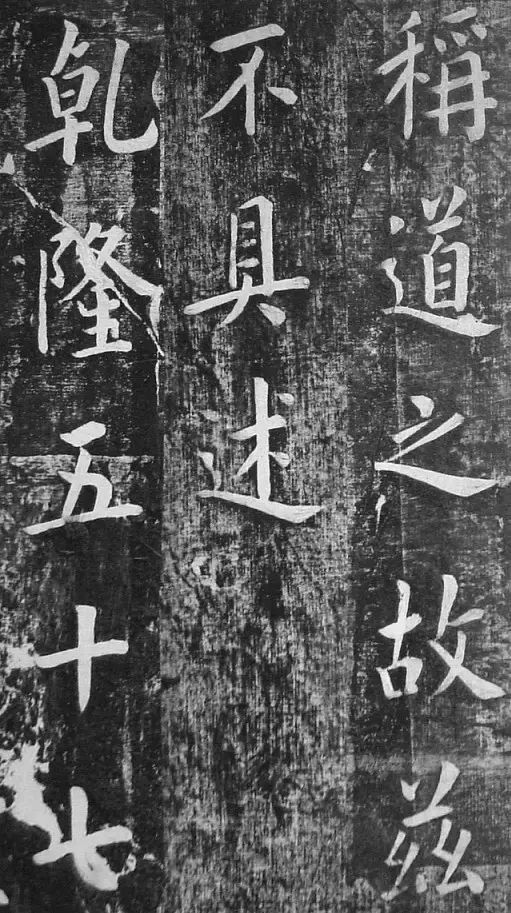 稱道之故兹
不具述
乹隆五十七